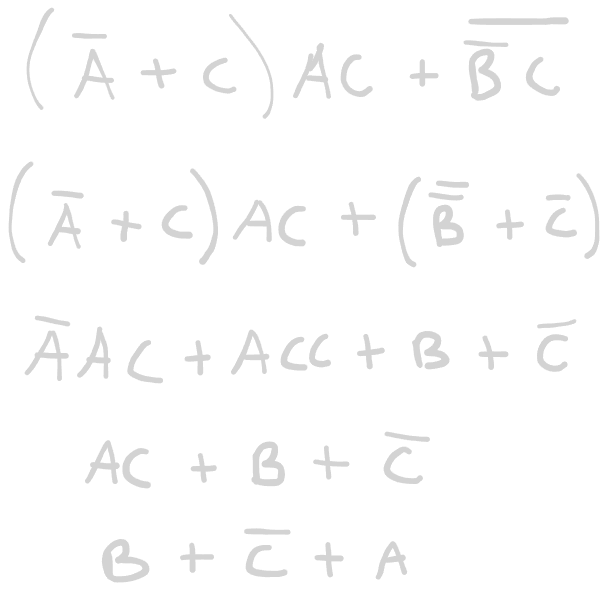 (A̅ + C) AC + \overline{B̅ C}
(A̅ + C) AC + (B̿ + C̅)
A̅AC + ACC + B + C̅
AC + B + C̅
B + C̅ + A